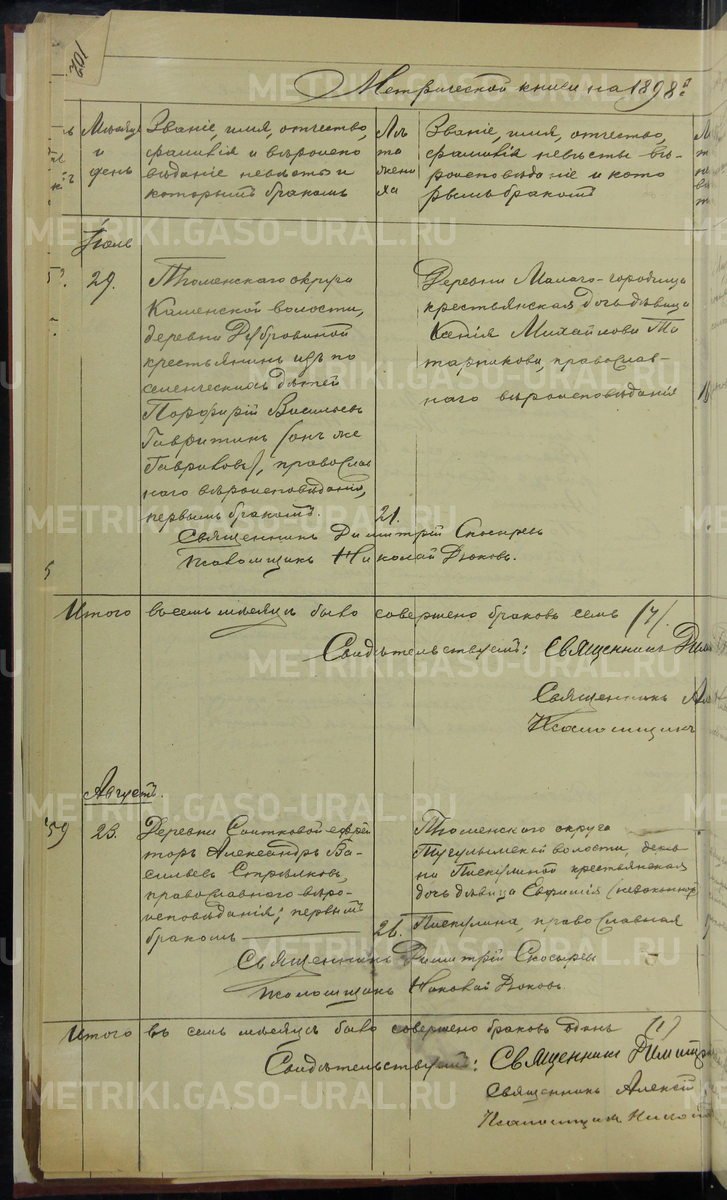 102
Метрической книги на 1898 г.
Мѣсяцъ и день
Званіе, имя, отчество,
фамилія и вѣроиспо
вѣданіе невѣсты и
которымъ бракомъ
Лѣ
та
жени
ха
Званіе, имя, отчество,
фамилія невѣсты вѣ-
роисповѣданіе и кото
рымъ бракомъ
Іюль
29.
Тюменскаго округа
Каменской волости,
деревни Дубровиной
крестьянинъ изъ по
селенческихъ дѣтей
Порфирій Васильевъ
Гавритинъ (онъ же
Гавриковъ), православ
наго вѣроисповѣданія,
первымъ бракомъ.
21.
Деревни Малаго-городища
крестьянская дочь дѣвица
Ксенія Михайлова Та
тарникова, православ-
наго вѣроисповѣданія
Священникъ Димитрій Скосыревъ
Псаломщикъ Николай Дюковъ.
Итого въ семъ мѣсяцѣ было совершено браковъ семь (7).
Свидѣтельствуемъ: Священникъ Дим
Священникъ Ал
Псаломщикъ
Августъ.
59
23.
Деревни Саитковой ефрей
торъ Александръ Ва-
сильевъ Стрѣлковъ,
православнаго вѣро-
исповѣданія; первымъ
бракомъ
26.
Тюменскаго округа
Тугулымской волости, дерев
ни Пискулиной крестьянская
дочь дѣвица Евфимія (незаконнор
Пискулина, православная
Священникъ Димитрій Скосыревъ
Псаломщикъ Николай Дюковъ
Итого въ семъ мѣсяцѣ было совершено браковъ одинъ (1)
Свидѣтельствуемъ: Священникъ Димитр
Священникъ Алексѣй
Псаломщикъ Никола
METRIKI.GASO-URAL.RU